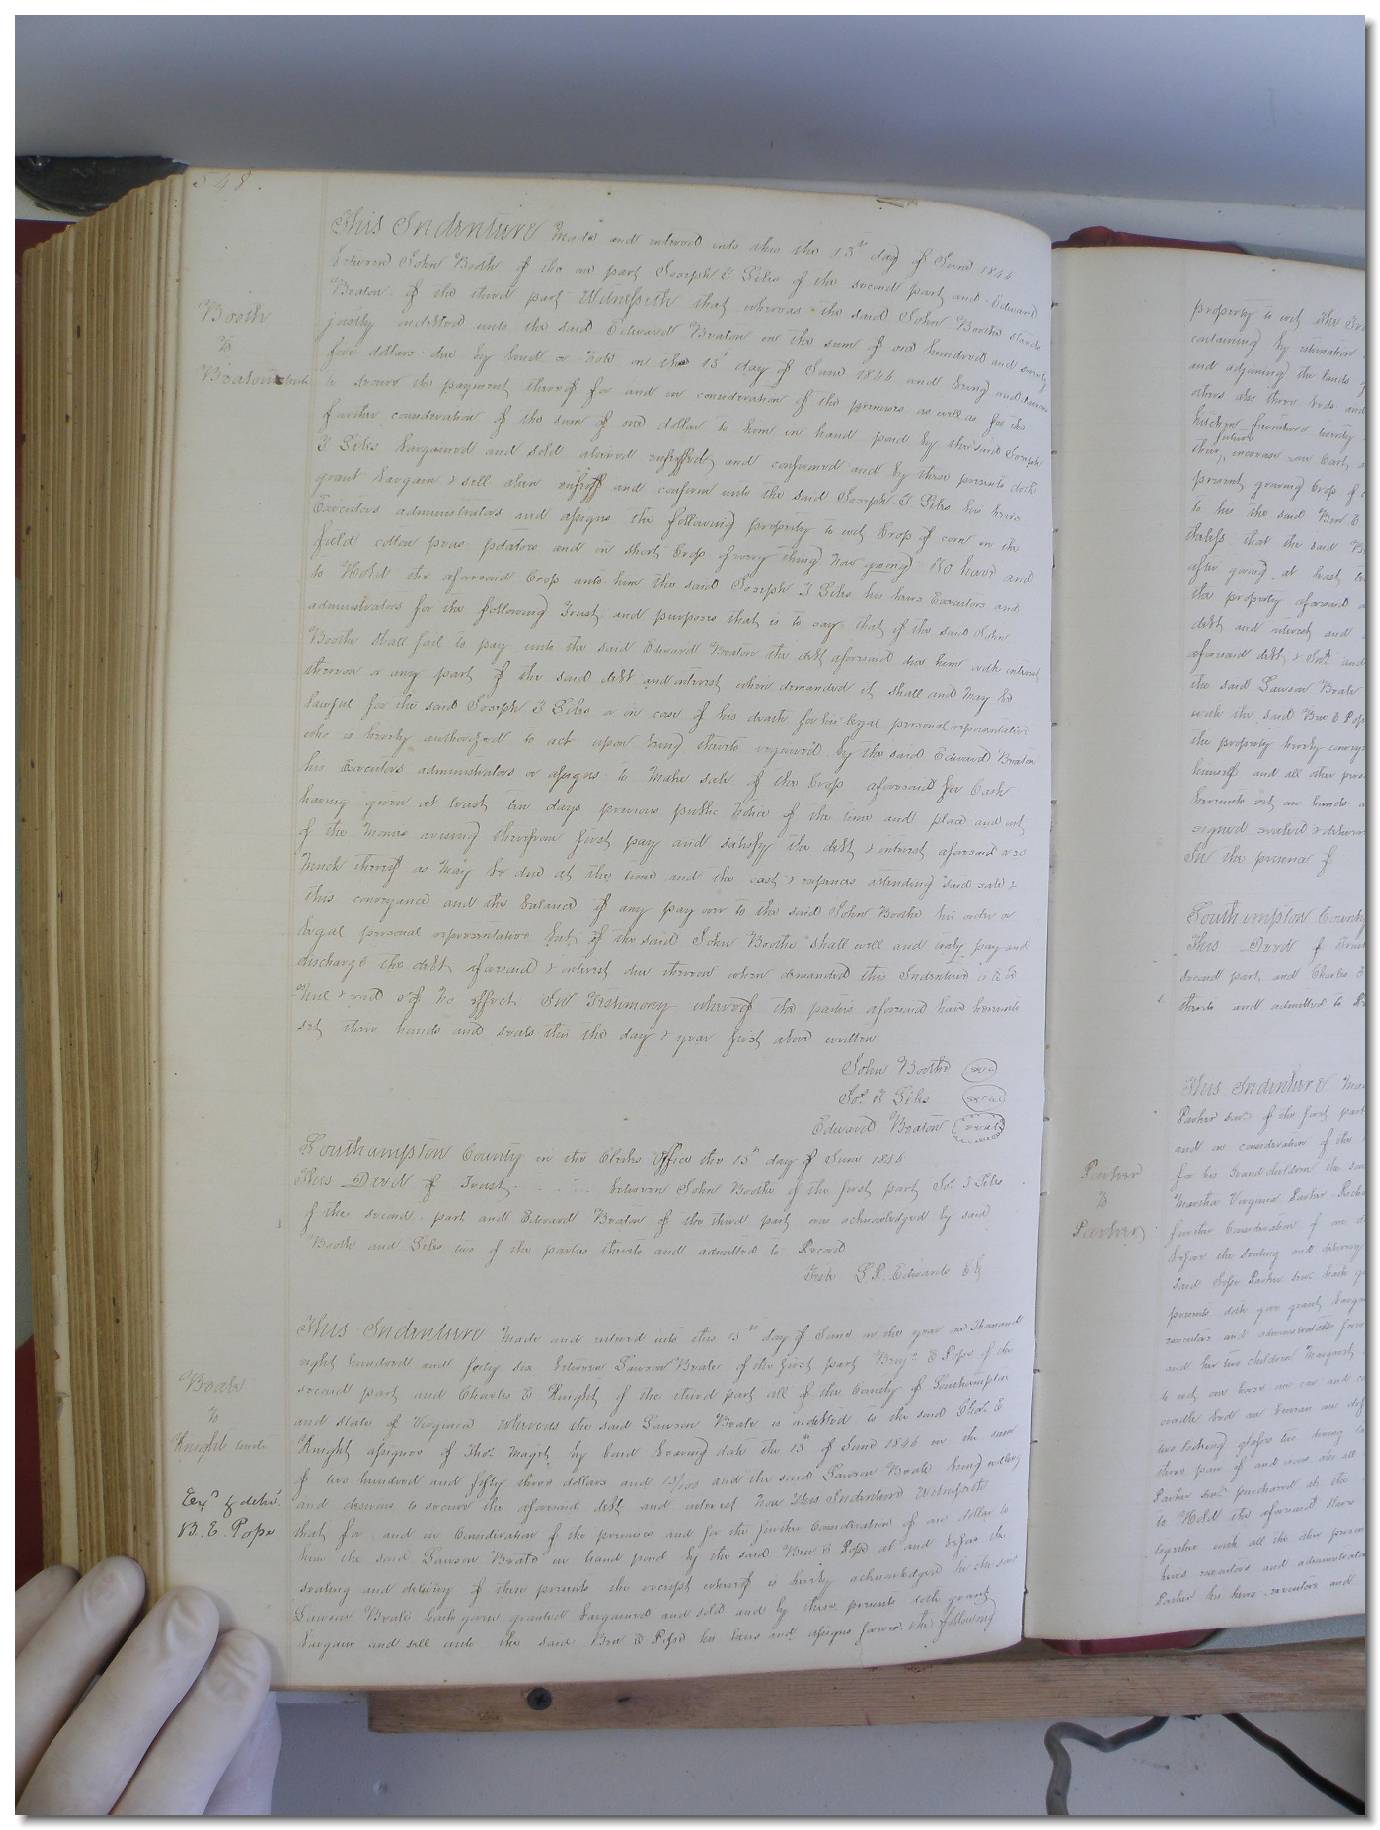 548.
This Indenture Made and entered into this the 15th day of June 1846
Between John Booth of the one part Joseph T Giles of the second part and Edward
Beaton of the third part Witnesseth that whereas the said John Boothe stands
justly indebted unto the said Edward Beaton in the sum of one hundred and
four dollars due by bond or note on the 15th day of June 1846 and being
to secure the payment thereof for and in consideration of the premises as well as for the
further consideration of the sum of one dollar to him in hand paid by the said Joseph
T Giles bargained and sold aliened enfeoffed and confirmed and by these presents doth
grant bargain & sell alien enfeoff and confirm unto the said Joseph T Giles his heirs
Executors administrators and assigns the following property to wit Crop of corn in the
field cotton peas potatoes and in short Crop of every thing now growing To have and
to Hold the aforesaid Crop unto him the said Joseph T Giles his heirs Executors and
administrators for the following Trust and purposes that is to say that if the said John
Boothe shall fail to pay unto the said Edward Beaton the debt aforesaid due him with interest
thereon or any part of the said debt and interest when demanded it shall and may be
lawful for the said Joseph T Giles or in case of his death for his legal personal representative
who is hereby authorized to act upon being thereto required by the said Edward Beaton
his Executors administrators or assigns to make sale of the Crop aforesaid for Cash
having given at least ten days previous public notice of the time and place and out
of the monies arising therefrom first pay and satisfy the debt & interest aforesaid or so
much thereof as may be due at the time and the cost & expences attending said sale &
this conveyance and the balance if any pay over to the said John Boothe his order or
legal personal representative but if the said John Boothe shall well and truly pay and
discharge the debt aforesaid & interest due thereon when demanded this Indenture is to be
Null & void & of no effect. In Testimony whereof the parties aforesaid have hereunto
set their hands and seals this the day & year first above written
John Boothe (seal)
Jos. T Giles (seal)
Edward Beaton (seal)
Booth
to
Beaton
Southampton County in the Clerks Office the 15th day of June 1846
This Deed of Trust between John Boothe of the first part Jos. T Giles
of the second part and Edward Beaton of the third part was acknowledged by said
Booth and Giles two of the parties thereto and admitted to Record
Teste L R Edwards
This Indenture Made and entered into this 15th day of June in the year one Thousand
eight hundred and forty six between Lawson Beale of the first part Benjn E Pope of the
second part and Charles E Knight of the third part all of the County of Southampton
and State of Virginia Whereas the said Lawson Beale is indebted to the said Chs. E
Knight assignee of Thos. Magit by bond bearing date the 15th of June 1846 in the sum
of two hundred and fifty three dollars and /100 and the said Lawson Beale being willing
and desirous to secure the aforesaid debt and interest Now This Indenture Witnesseth
that for and in Consideration of the premises and for the further Consideration of one dollar to
him the said Lawson Beale in hand paid by the said Ben E Pope at and before the
sealing and delivery of these presents the receipt whereof is hereby acknowledged he the said
Lawson Beale hath given granted bargained and sold and by these presents doth grant
bargain and sell unto the said Ben E Pope his heirs and assigns forever the following
Beale
to
Knight
B. E. Pope
property to wit The
containing by estimation
and adjoining the lands
kitchen furniture
future
their increase
present growing Crop of
to his the said Ben E
that the said
after giving at least
the property aforesaid
debt and interest and
aforesaid debt & Int. and
the said Lawson Beale
with the said Ben E Pope
the property hereby
himself and all other
hereunto set our hands
signed sealed & delivered
In the presence of
Southampton County
This Deed of Trust
second part and Charles E
thereto and admitted to
Parker
to
Parker
This Indenture
Parker of the first part
and in consideration of the
for his Grand children the
Martha Virginia Parker
further Consideration of one
before the sealing and delivery
said Parker hath
presents doth give grant
executors and administrators
and her two children Margaret
Parker purchased at the
to Hold the aforesaid
together with all the
heirs executors and administrators
Parker his heirs executors and